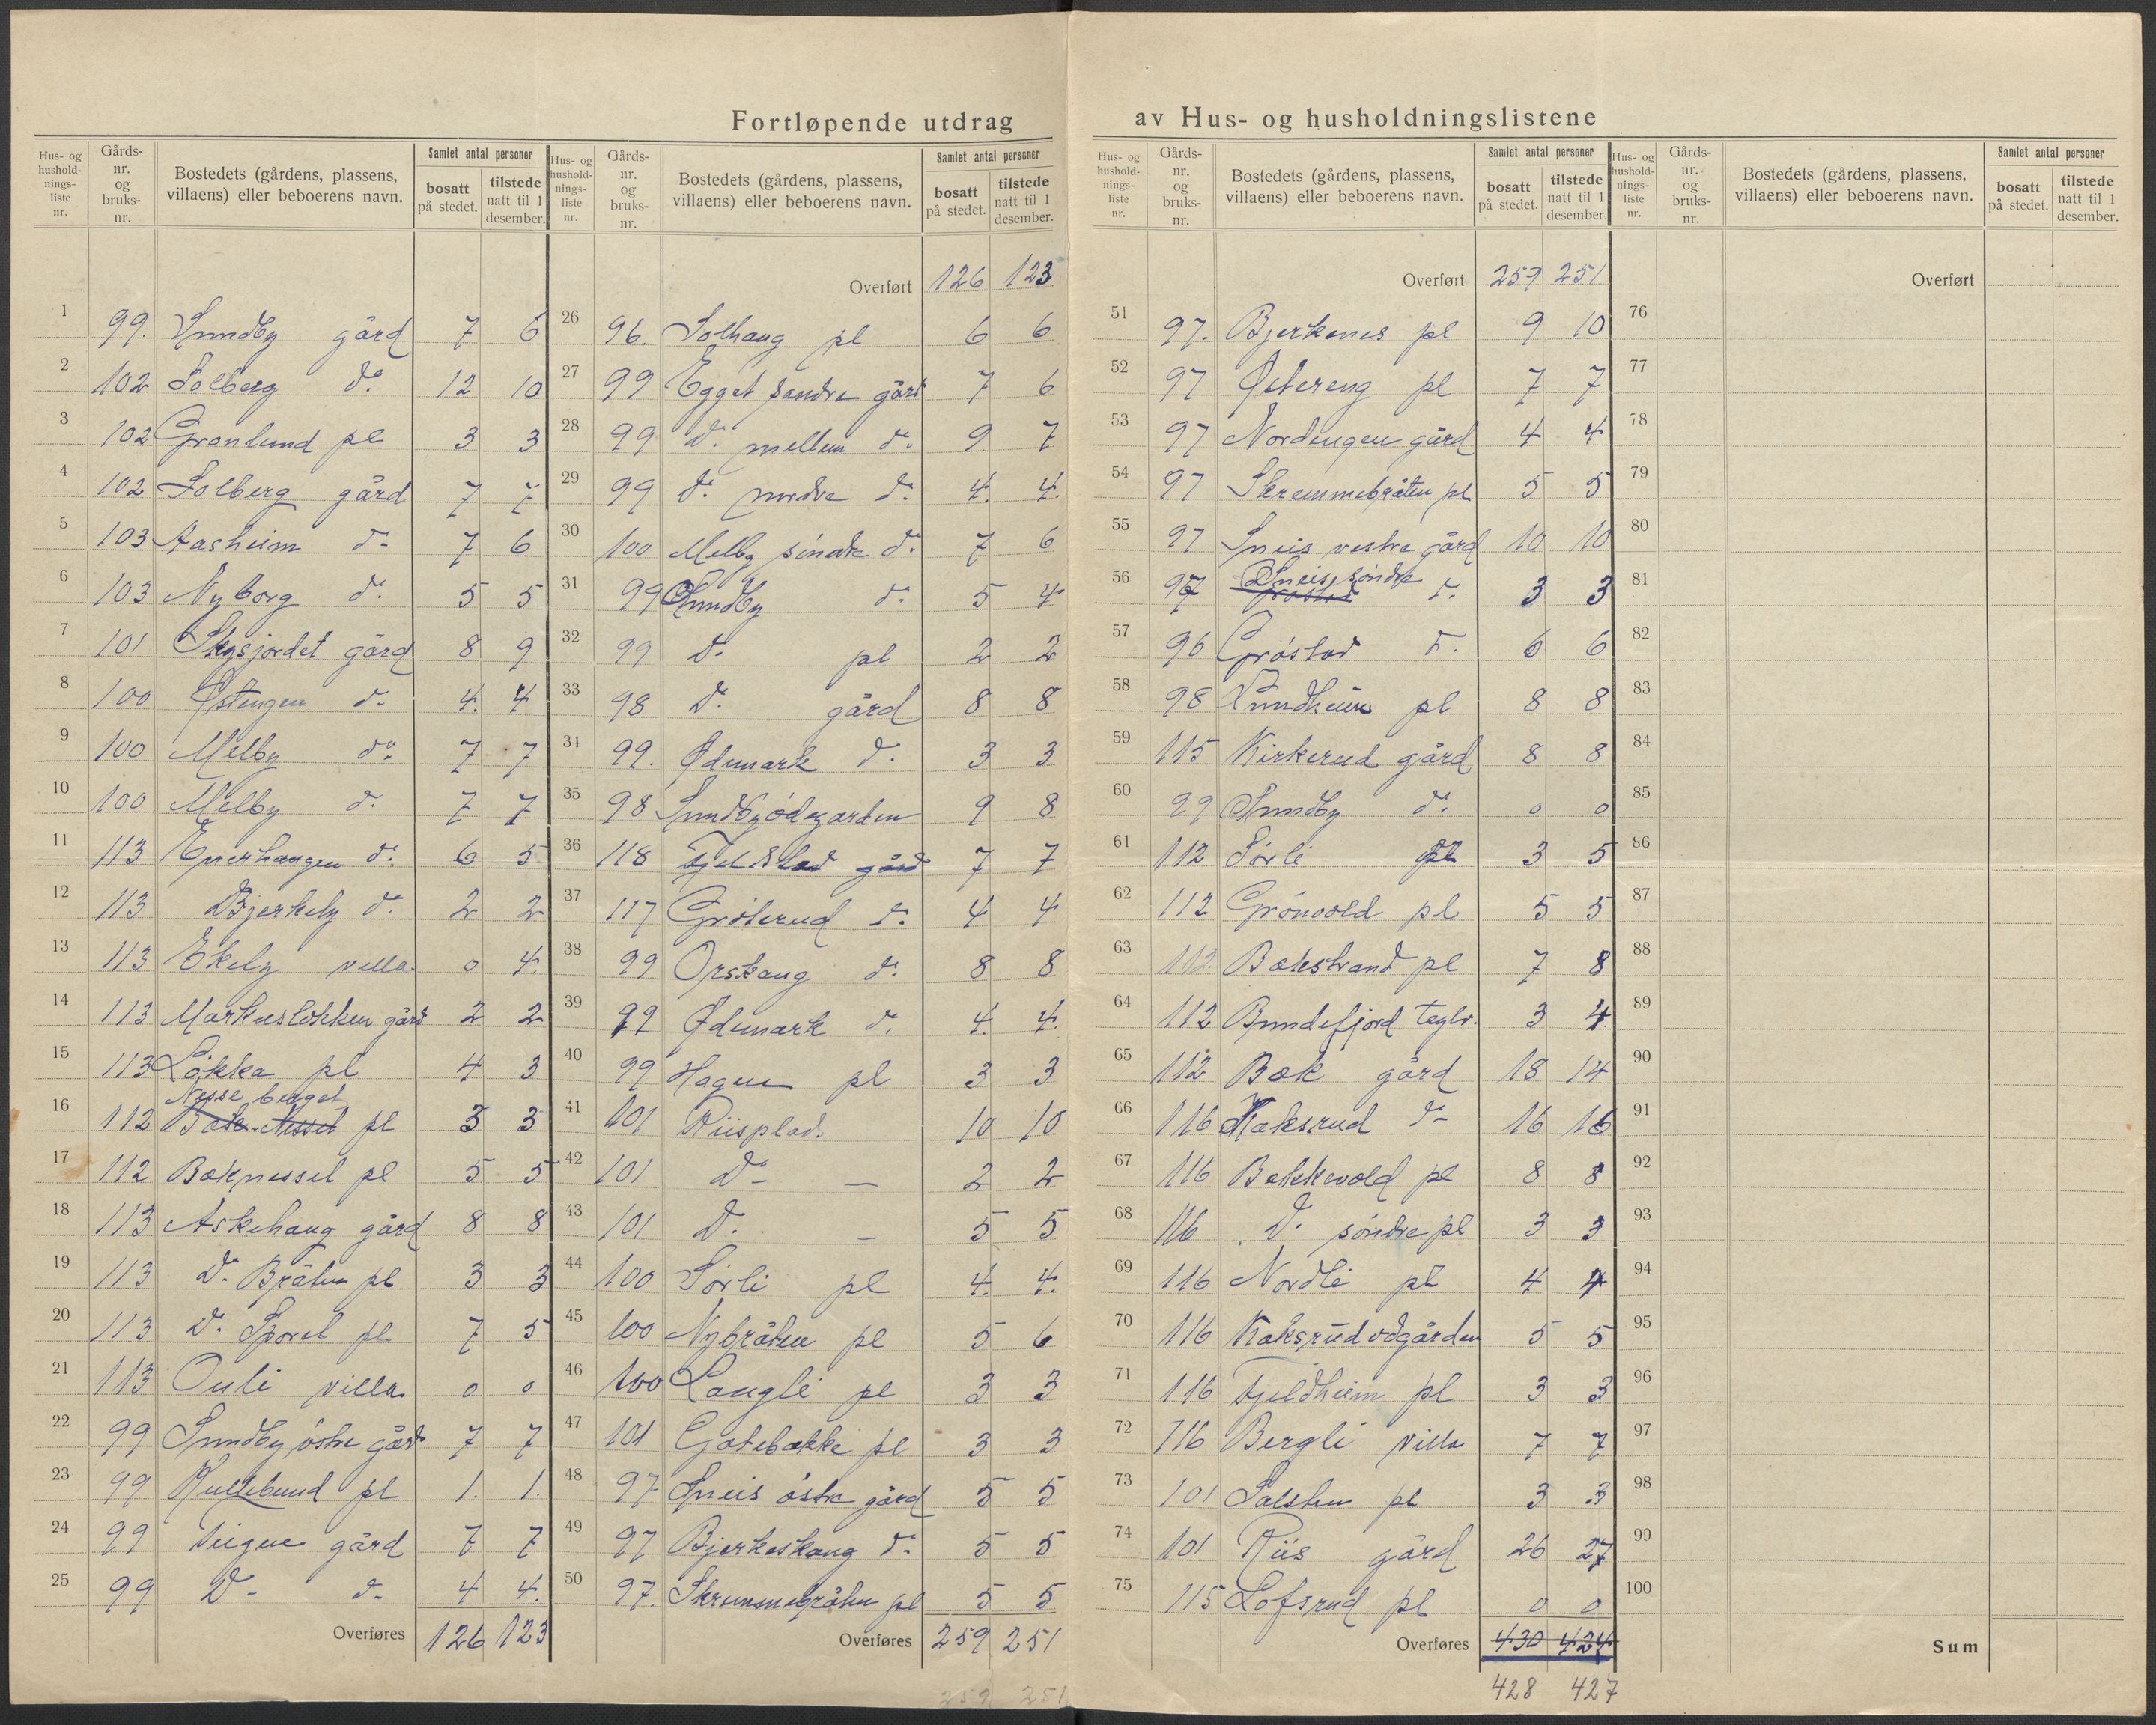 Fortløpende utdrag av Hus- og husholdningslistene
Hus- og husholdnings-liste nr. Gårds-nr. og bruks-nr. Bostedets (gårdens, plassens, villaens) eller beboerens navn. Samlet antal personer bosatt på stedet. tilstede natt til 1 desember.
1 99. Sundby gård 7 6
2 102 Solberg do 12 10
3 102 Grønlund pl 3 3
4 102 Solberg gård 7 7
5 103 Aasheim do 7 6
6 103 Nyborg do 5 5
7 101 Skysjordet gård 8 9
8 100 Østengen do 4. 4
9 100 Melby do 7 7
10 100 Melby do 7 7
11 113 do 6 5
12 113 Bjerkely do 2 2
13 113 Ekely villa 0 4.
14 113 Markusløkken gård 2 2
15 113 Løkka pl 4 3
Nesseberget
16 112 Bæk-Nesset pl 3 3
17 112 Bæknesset pl 5 5
18 113 Askehaug gård 8 8
19 113 Do Bråten pl 3 3
20 113 Do pl 7 5
21 113 villa 0 0
22 99 Sundby østre gård 7 7
23 99 Kullebund pl 1. 1.
24 99 gård 7 7
25 99 Do do 4 4.
Overføres 126 123
Hus- og husholdnings-liste nr. Gårds-nr. og bruks-nr. Bostedets (gårdens, plassens, villaens) eller beboerens navn. Samlet antal personer bosatt på stedet. tilstede natt til 1 desember.
Overført 126 123
26 96. Solhaug pl 6 6
27 99 Egget søndre gård 7 6
28 99 Do mellem do 9. 7
29 99 Do nordre do 4. 4.
30 100 Melby søndre do 7 6
31 99 Sundby do 5 4
32 99 Do pl 2 2
33 98 Do gård 8 8
34 99. Ødemark do 3 3
35 98 Sundbyødegarden 9 8
36 118 Fjeldstad gård 7 7
37 117 Grøterud do 4 4
38 99 Orskaug do 8 8
39 99 Ødemark do 4. 4.
40 99 Hagen pl 3 3
41 101 Riisplad. 10 10
42 101 Do — 2 2
43 101 Do — 5 5
44 100 Sørli pl 4. 4.
45 100 Nybråten pl 5 6
46 100 Langli pl 3 3
47 101 Gatebakke pl 3 3
48 97 Sneis østre gård 5 5
49 97 Bjerkeskaug do 5 5
50 97. Skrammebråten pl 5 5
Overføres 259 251
259 251
Hus- og husholdnings-liste nr. Gårds-nr. og bruks-nr. Bostedets (gårdens, plassens, villaens) eller beboerens navn. Samlet antal personer bosatt på stedet. tilstede natt til 1 desember.
Overført 259 251
51 97. Bjerkenes pl 9 10
52 97 Østereng pl 7 7
53 97 Nordengen gård 4 4
54 97 Skrammebråten pl 5 5
55 97 Sneis vestre gård 10 10
Sneis, søndre
56 97 Grøstad do 3 3
57 96 Grøstad do 6 6
58 98 Sundheim pl 8 8
59 115 Kirkerud gård 8 8
60 99 Sundby do 0 0
61 112 Sørli pl 3 5
62 112 Grønvold pl 5 5
63 112. Bækstrand pl 7 8
64 112 Bundefjord teglv. 3 4
65 112 Bæk gård 18 14
66 116 Kaksrud do 16 16
67 116 Bakkevold pl 8 8
68 116 Do søndre pl 3 3
69 116 Nordli pl 4 4
70 116 Kaksrudødgården 5 5
71 116 Fjeldheim pl 3 3
72 116 Bergli villa 7 7
73 101 pl 3 3
74 101 Riis gård 26 27
75 115 Lofsrud pl 0 0
Overføres 430 424
428 427
Hus- og husholdnings-liste nr. Gårds-nr. og bruks-nr. Bostedets (gårdens, plassens, villaens) eller beboerens navn. Samlet antal personer bosatt på stedet. tilstede natt til 1 desember.
Overført
76
77
78
79
80
81
82
83
84
85
86
87
88
89
90
91
92
93
94
95
96
97
98
99
100
Sum